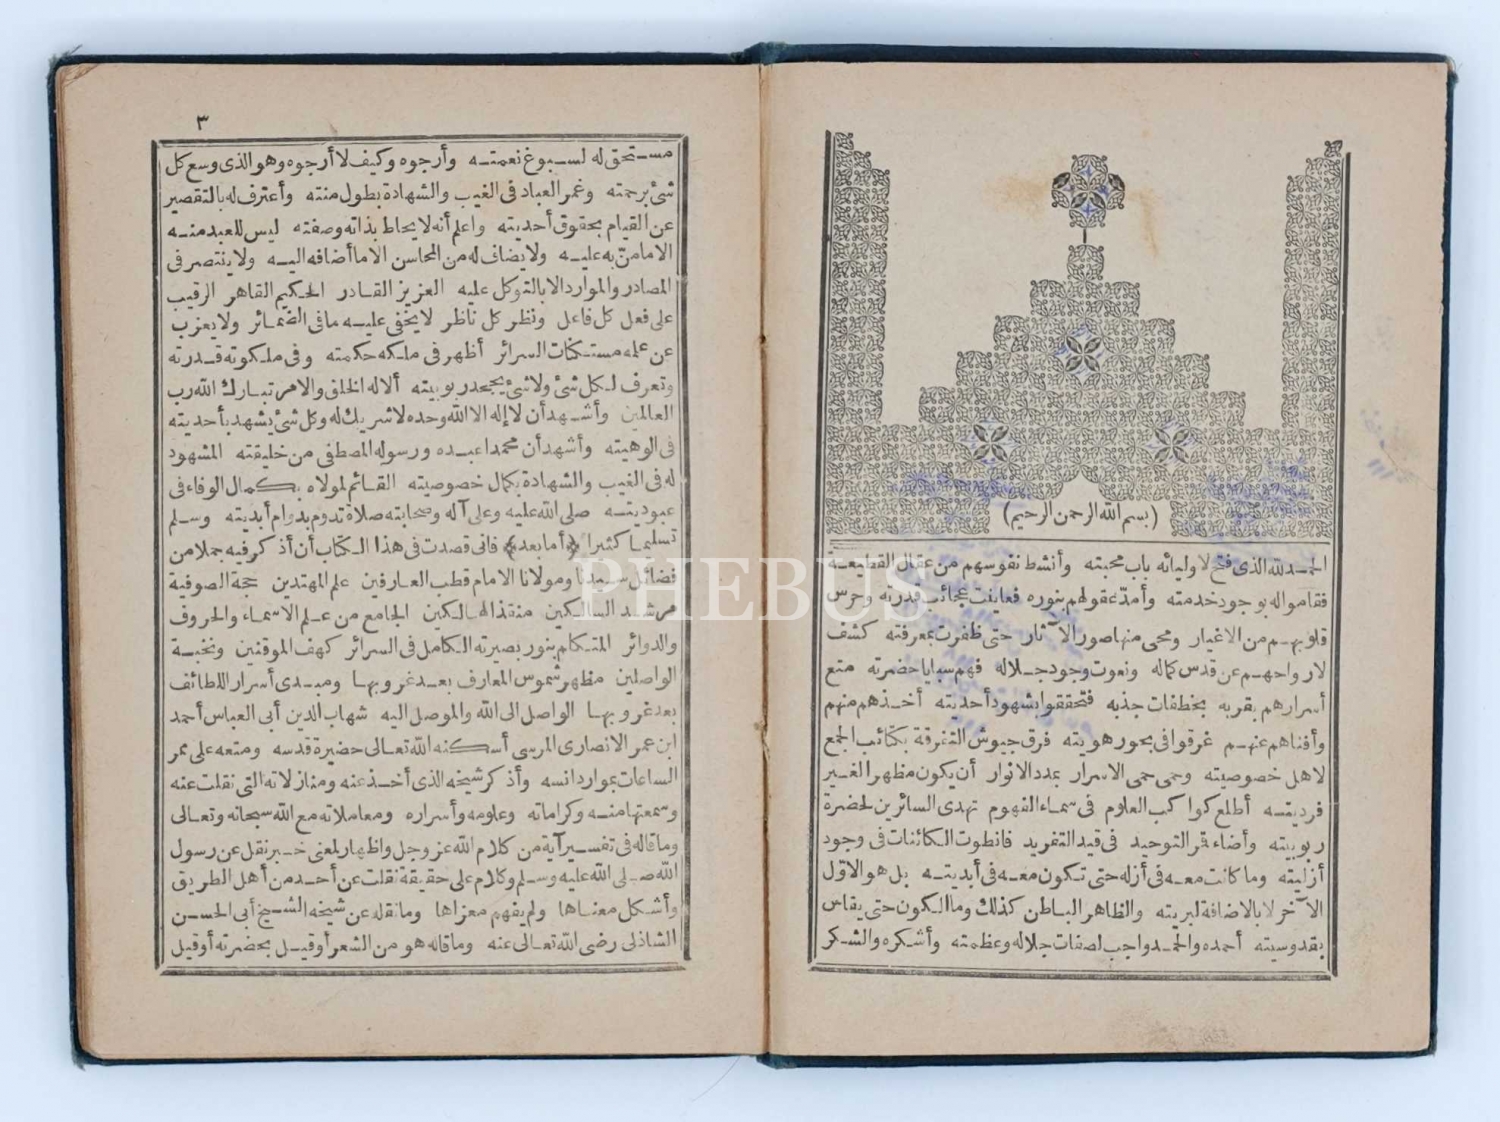 (بسم الله الرحمن الرحيم)
الحمد لله الذى فتح لاوليائه باب محبته وأنشط نفوسهم من عقال القطيعة
فقاموا له بوجود خدمته وأمد عقولهم بنوره فعاينت عجائب قدرته وحرس
قلوبهم من الاغيار ومحى منها صور الآثار حتى ظفرت بمعرفته كشف
لارواحهم عن قدس كماله ونعوت وجود جلاله فهم سبايا حضرته متع
أسرارهم بقربه بخطفات جذبه فتحققوا بشهود أحديته أخذهم منهم
وأفناهم عنهم غرقوا فى بحور هويته فرق جيوش التفرقة بكتائب الجمع
لاهل خصوصيته وحمى حمى الاسرار بمدد الانوار أن يكون مظهر الغير
فرديته أطلع كواكب العلوم فى سماء الفهوم تهدى السائرين لحضرة
ربوبيته وأضاء قمر التوحيد فى قيد التفريد فانطوت الكائنات فى وجود
أزليته وما كانت معه فى أزله حتى تكون معه فى أبديته بل هو الاول
الآخر لا بالاضافة لبريته والظاهر الباطن كذلك وما الكون حتى يقاس
بقدوسيته أحمده والحمد واجب لصفات جلاله وعظمته وأشكره والشكر
٣
مستحق له لسبوغ نعمته وأرجوه وكيف لا أرجوه وهو الذى وسع كل
شئ برحمته وغمر العباد فى الغيب والشهادة بطول منته وأعترف له بالتقصير
عن القيام بحقوق أحديته واعلم أنه لا يحاط بذاته وصفته ليس للعبد منه
الا ما من به عليه ولا يضاف له من المحاسن الا ما أضافه اليه ولا ينتصر فى
المصادر والموارد الا بالتوكل عليه العزيز القادر الحكيم القاهر الرقيب
على فعل كل فاعل ونظر كل ناظر لا يخفى عليه ما فى الضمائر ولا يعزب
عن علمه مستكنات السرائر أظهر فى ملكه حكمته وفى ملكوته قدرته
وتعرف لكل شئ ولا شئ يجحد ربوبيته ألا له الخلق والامر تبارك الله رب
العالمين وأشهد أن لا إله الا الله وحده لا شريك له وكل شئ يشهد بأحديته
فى الوهيته وأشهد أن محمدا عبده ورسوله المصطفى من خليقته المشهود
له فى الغيب والشهادة بكمال خصوصيته القائم لمولاه بكمال الوفاء فى
عبوديته صلى الله عليه وعلى آله وصحابته صلاة تدوم بدوام أبديته وسلم
تسليما كثيرا ﴿أما بعد﴾ فانى قصدت فى هذا الكتاب أن أذكر فيه جملا من
فضائل سيدنا ومولانا الامام قطب العارفين علم المهتدين حجة الصوفية
مرشد السالكين منقذ الهالكين الجامع من علم الاسماء والحروف
والدوائر المتكلم بنور بصيرته الكامل فى السرائر كهف الموقنين ونخبة
الواصلين مظهر شموس المعارف بعد غروبها ومبدى أسرار اللطائف
بعد غروبها الواصل الى الله والموصل اليه شهاب الدين أبى العباس أحمد
ابن عمر الانصارى المرسى أسكنه الله تعالى حضيرة قدسه ومتعه على ممر
الساعات بموارد انسه وأذكر شيخه الذى أخذ عنه ومنازلاته التى نقلت عنه
وسمعتها منه وكراماته وعلومه وأسراره ومعاملاته مع الله سبحانه وتعالى
وما قاله فى تفسير آية من كلام الله عز وجل واظهار لمعنى خبر نقل عن رسول
الله صلى الله عليه وسلم وكلام على حقيقة نقلت عن أحد من أهل الطريق
وأشكل معناها ولم يفهم مغزاها وما نقله عن شيخه الشيخ أبى الحسن
الشاذلى رضى الله تعالى عنه وما قاله هو من الشعر أو قيل بحضرته أو قيل
PHEBUS